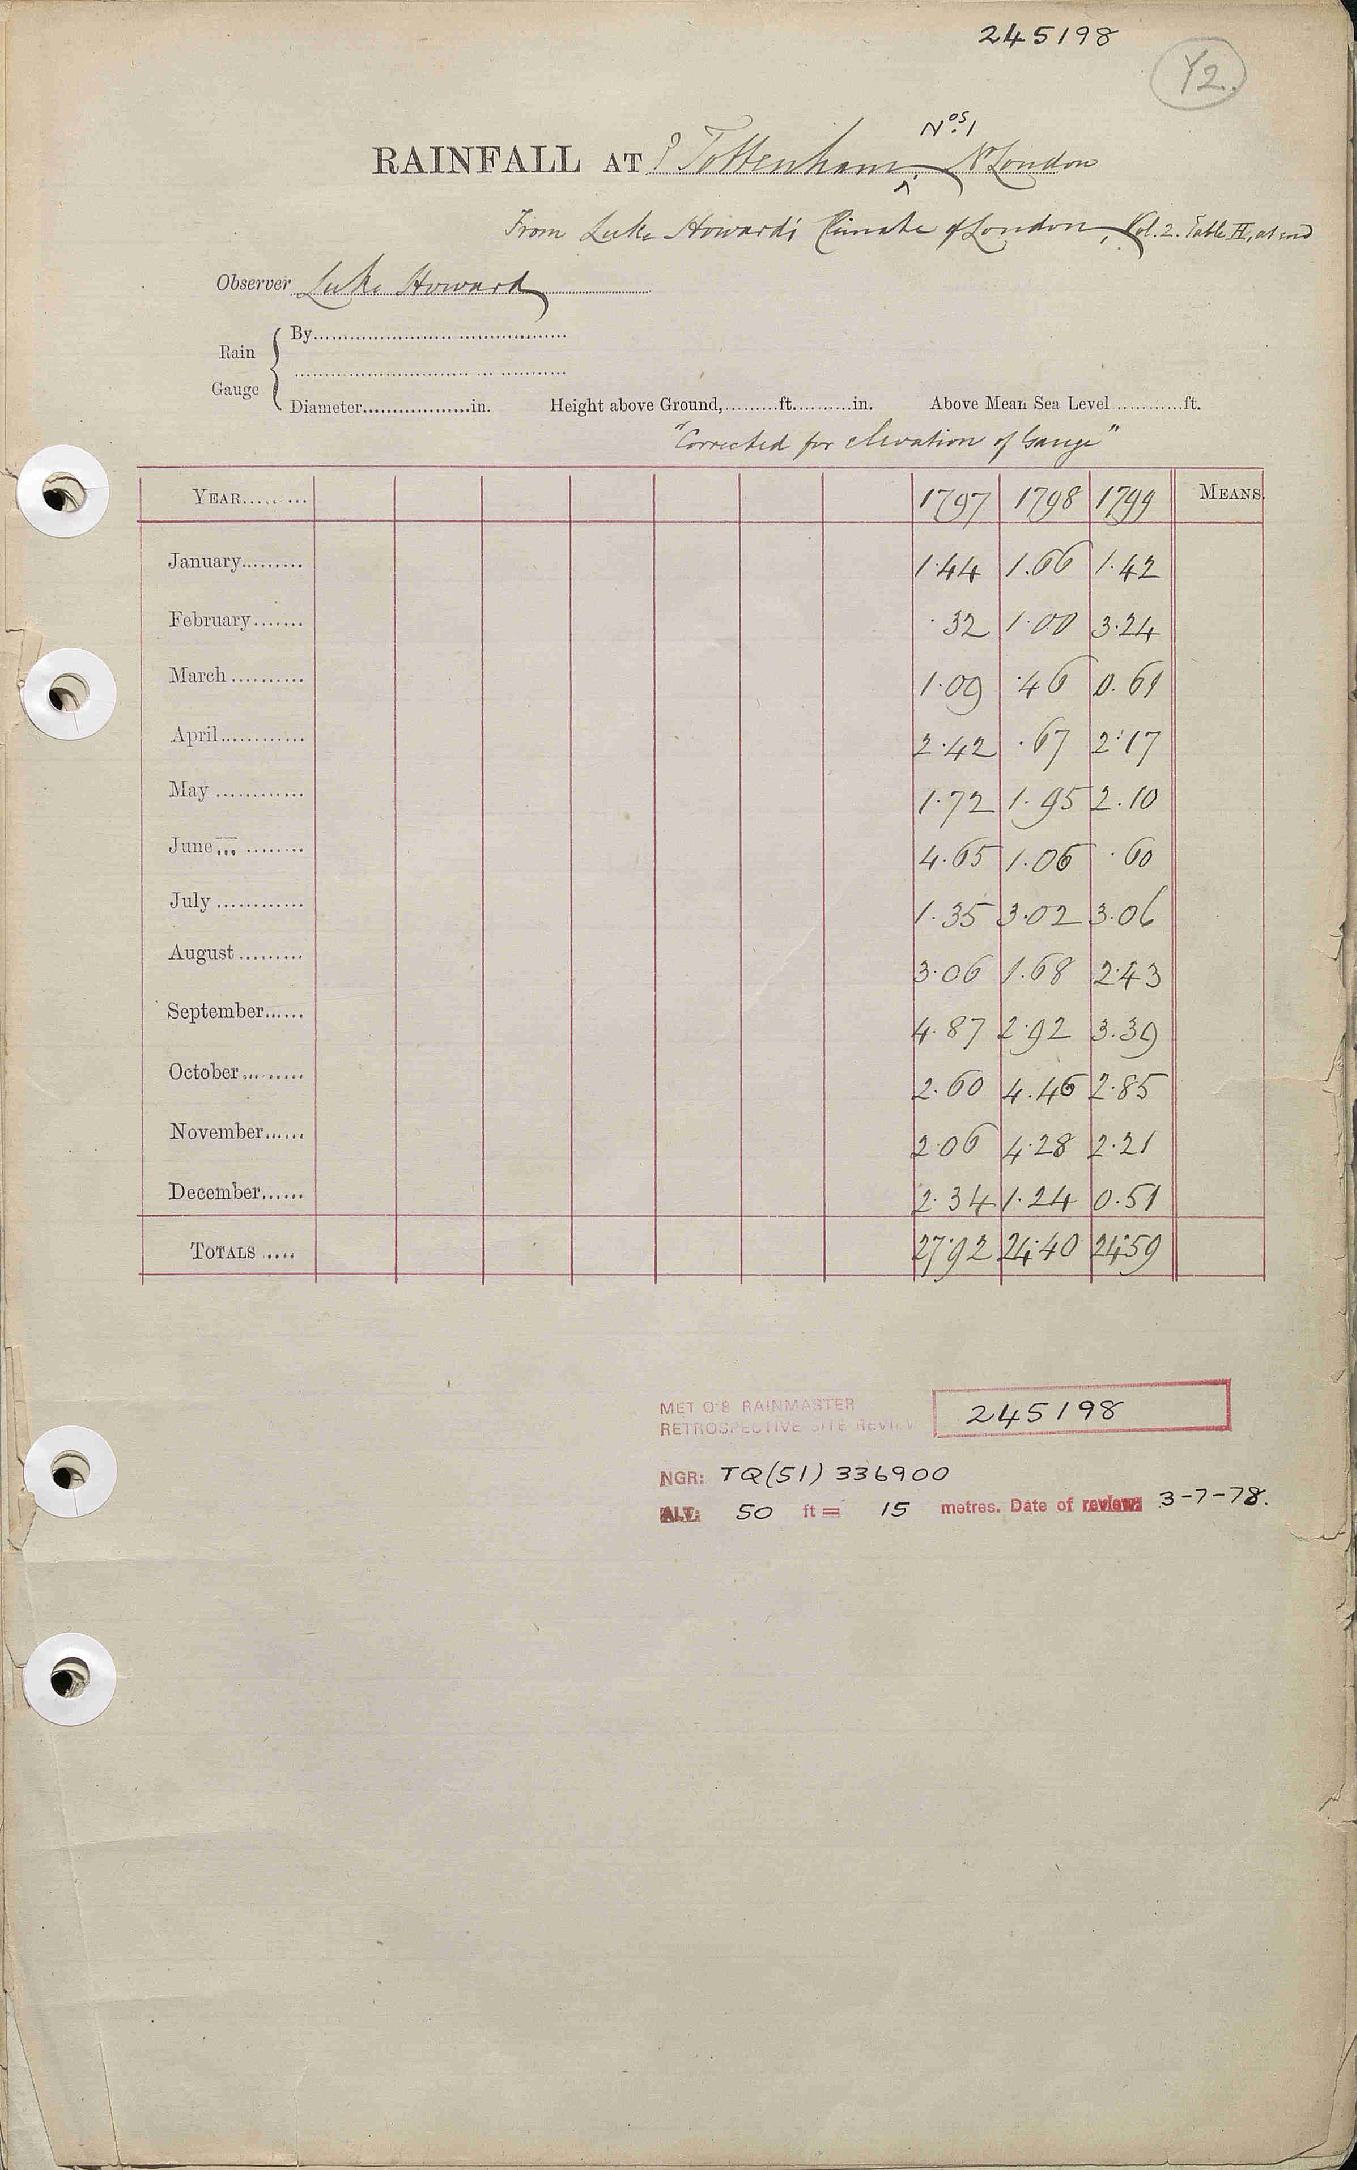 245198
Y2.
Nos. 1
RAINFALL AT ? Tottenham, Nr London
From Luke Howard's Climate of London, Vol. 2. Table II, at end
Observer Luke Howard
Rain Gauge
By
Diameter in. Height above Ground, ft. in. Above Mean Sea Level ft.
"Corrected for elevation of Gauge"
YEAR 1797 1798 1799 MEANS.
January 1.44 1.66 1.42
February .32 1.00 3.24
March 1.09 .46 0.61
April 2.42 .67 2.17
May 1.72 1.95 2.10
June 4.65 1.06 .60
July 1.35 3.02 3.06
August 3.06 1.68 2.43
September 4.87 2.92 3.39
October 2.60 4.46 2.85
November 2.06 4.28 2.21
December 2.34 1.24 0.51
TOTALS 27.92 24.40 24.59
MET O 8 RAINMASTER
RETROSPECTIVE SITE REVIEW 245198
NGR: TQ(51) 336900
ALT: 50 ft = 15 metres. Date of review: 3-7-78.